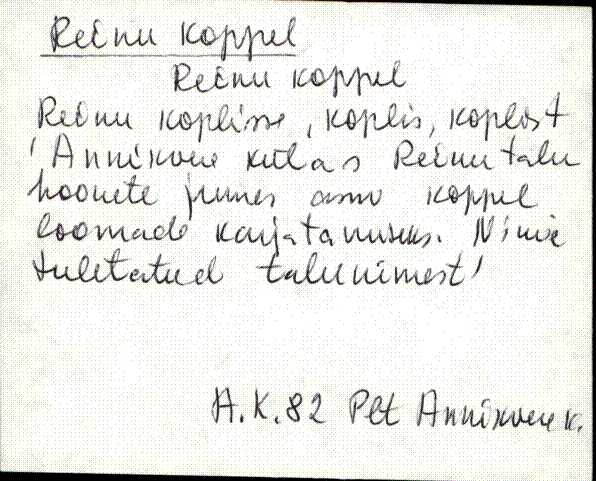 Reinu koppel
Reinu koppel
Reinu koplisse, koplis, koplist
'Annikvere külas Reinu talu
hoonete juures asuv koppel
loomade karjatamiseks. Nimi
tuletatud talunimest'
A.K.82 Plt Annikvere k.